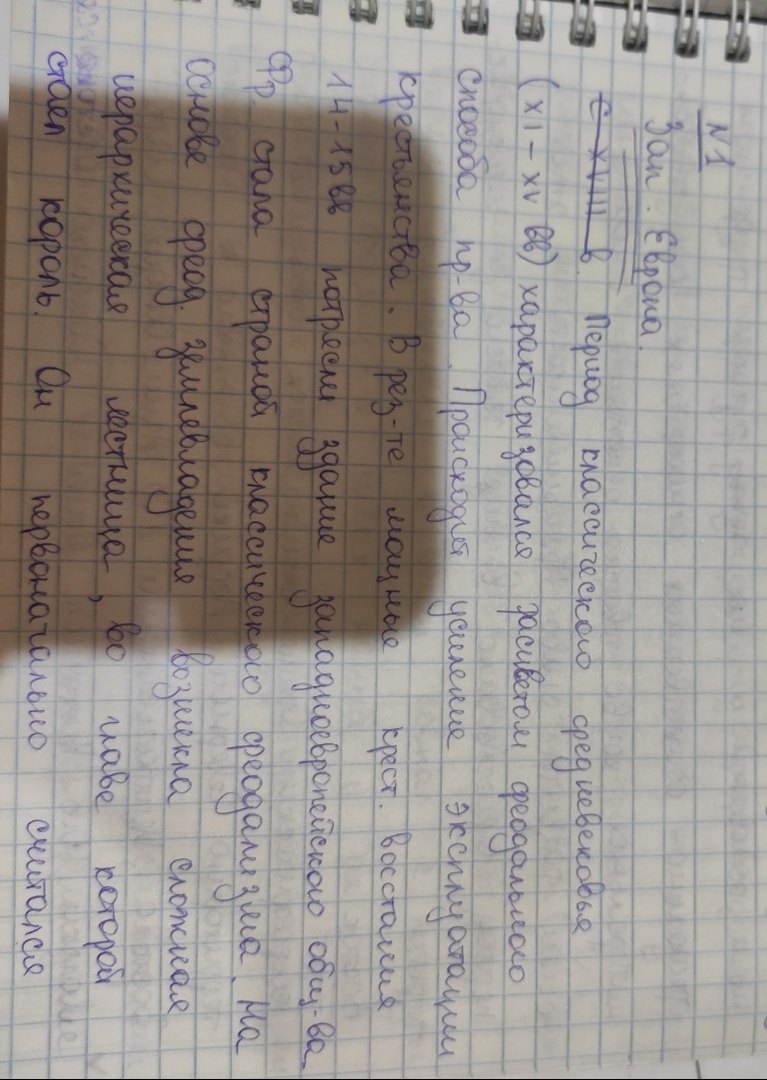 N1
Зап. Европа.
С XVIII в. Период классического средневековья
(XI – XV вв) характеризовался расцветом феодального
способа пр-ва. Происходит усиление эксплуатации
крестьянства. В рез-те мощные крест. восстания
14-15 вв потрясли здание западноевропейского общ-ва
Фр. стала страной классического феодализма. На
основе феод. землевладения возникла сложная
иерархическая лестница, во главе которой
стоял король. Он первоначально считался